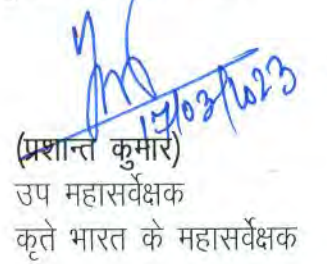 17/03/2023
(प्रशान्त कुमार)
उप महासर्वेक्षक
कृते भारत के महासर्वेक्षक